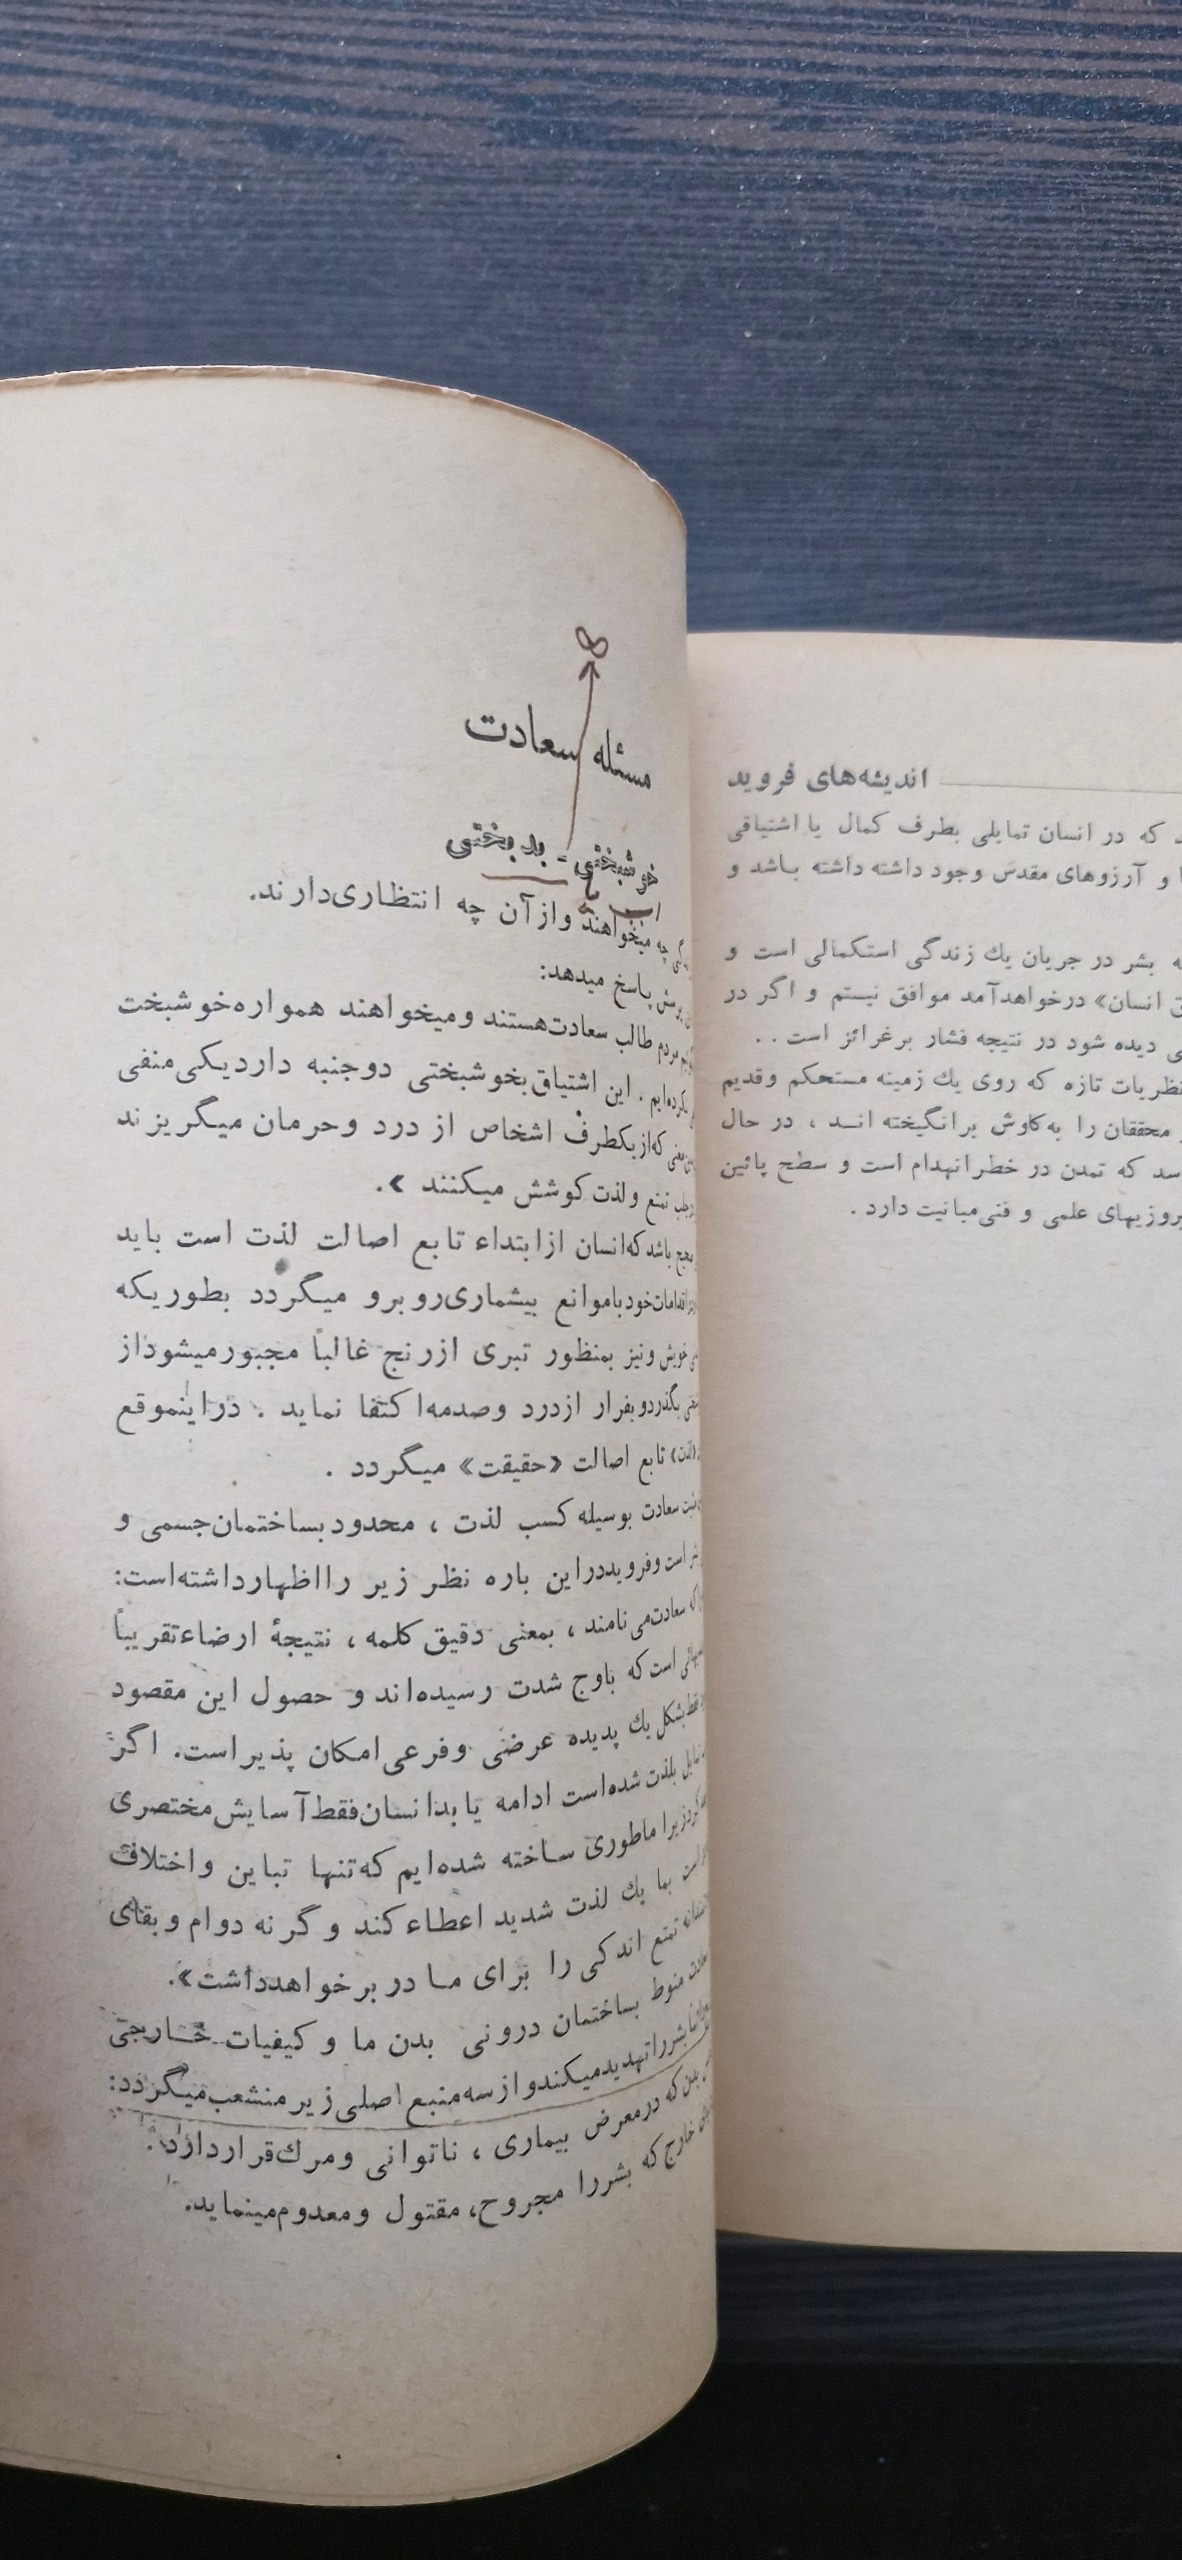 اندیشه‌های فروید
که در انسان تمایلی بطرف کمال یا اشتیاقی
و آرزوهای مقدس وجود داشته داشته باشد و
بشر در جریان یك زندگی استکمالی است و
انسان» درخواهدآمد موافق نیستم و اگر در
دیده شود در نتیجه فشار برغرائز است . .
نظریات تازه که روی یك زمینه مستحکم وقدیم
محققان را به‌کاوش برانگیخته انــد ، در حال
که تمدن در خطرانهدام است و سطح پائین
علمی و فنی مباینت دارد .
مسئله سعادت
خوشبختی - بدبختی
چه میخواهند وازآن چه انتظاری‌دارند.
پاسخ میدهد:
مردم طالب سعادت‌هستند ومیخواهند همواره‌خوشبخت
این اشتیاق‌بخوشبختی دوجنبه داردیکی‌منفی
که‌ازیکطرف اشخاص از درد وحرمان میگریزند
تمتع ولذت‌کوشش میکنند ».
باشدکه‌انسان ازابتداء تابع اصالت لذت است باید
اقدامات‌خودباموانع بیشماری‌روبرو میگردد بطوریکه
خویش ونیز بمنظور تبری ازرنج غالباً مجبورمیشوداز
بگذردوبفرار ازدرد وصدمه‌اکتفا نماید . دراینموقع
تابع اصالت «حقیقت» میگردد .
سعادت بوسیله کسب لذت ، محدودبساختمان‌جسمی و
است وفرویددراین باره نظر زیر رااظهارداشته‌است:
که سعادت‌می‌نامند ، بمعنی دقیق‌کلمه ، نتیجهٔ ارضاءتقریباً
است‌که باوج شدت رسیده‌اند و حصول این مقصود
فقط‌بشکل یك پدیده عرضی وفرعی‌امکان پذیراست. اگر
بلذت شده‌است ادامه یابدانسان‌فقط‌آسایش‌مختصری
زیرا ماطوری ساخته شده‌ایم که‌تنها تباین واختلاف
است بما یك لذت شدید اعطاءکند وگرنه دوام وبقای
تمتع اندکی را برای مـا دربرخواهدداشت».
منوط بساختمان درونی بدن ما و کیفیات خـارجی
بشرراتهدیدمیکندوازسه‌منبع‌اصلی‌زیرمنشعب‌میگردد:
بدن‌که درمعرض بیماری ، ناتوانی ومرك‌قراردارد.
خارج‌که بشررا مجروح، مقتول ومعدوم‌مینماید.